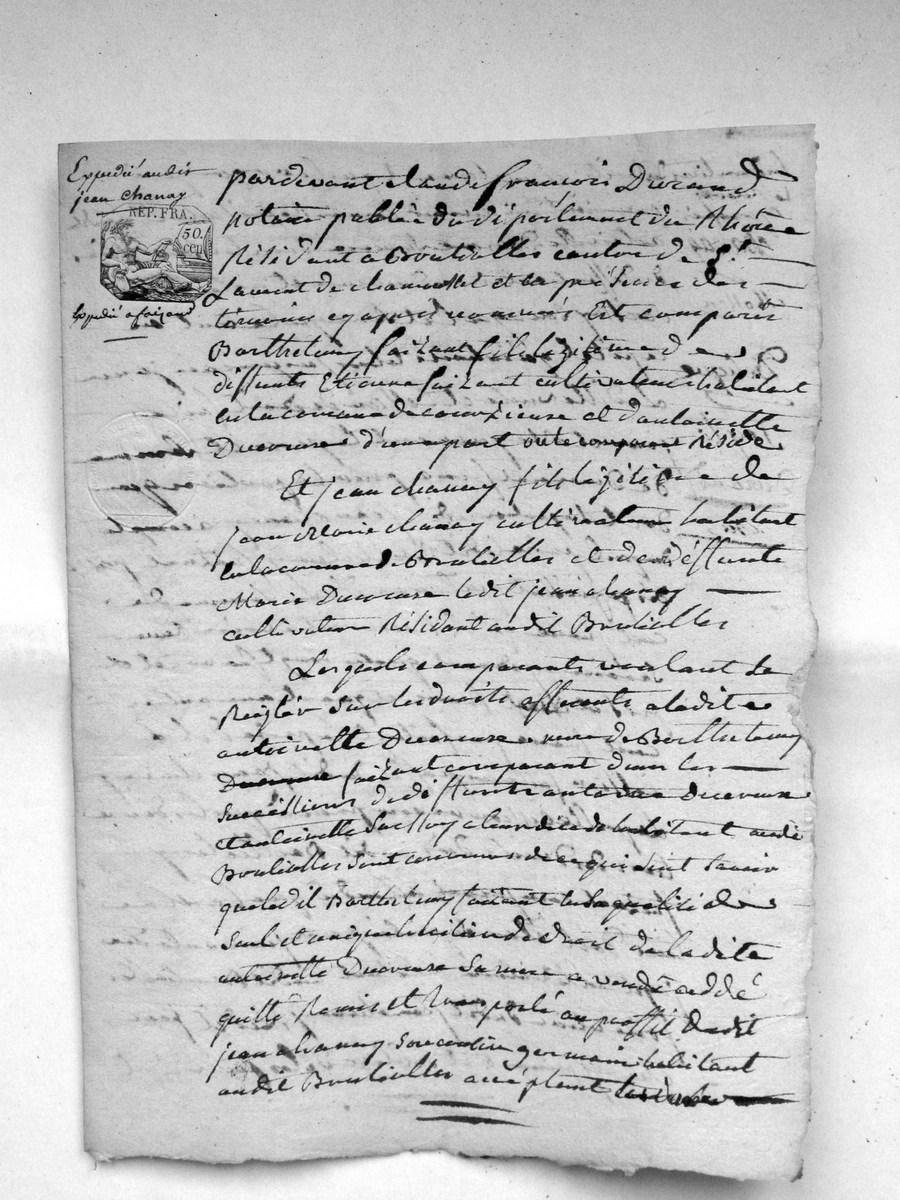 Expedié audit
jean chanay
REP. FRA.
50.
cen
Expedié a faizant
pardevant claude françois Durand
notaire public du département du Rhône
Résidant a Brulliolles canton de St.
Laurent de chamousset et en présence des
témoins cy après nommés Est comparu
Barthelemy faizant fils légitime de
deffunts Etienne faizant cultivateur habitant
en la comune de courzieu et d'antoinette
Ducreux d'une part réside
Et jean chanay fils légitime de
jean Marie chanay cultivateur habitant
en la comune de Brulliolles et de deffunte
Marie Ducreuse ledit jean chanay
cultivateur Résidant audit Brulliolles
Lesquels comparants voulant se
Regler sur les droits affferents a ladite
antoinette Ducreuse mere de Barthelemy
faizant comparant dans les
successions de deffunts antoine Ducreux
et antoinette a leur décé habitant audit
Brulliolles sont convenus de ce qui suit savoir
que ledit Barthelemy faizant en sa qualité de
seul et unique heritier de droit de ladite
antoinette Ducreuse sa mere a vendu ceddé
quitté Remis et transporté au proffit dudit
jean chanay son cousin germain habitant
audit Brulliolles acceptant